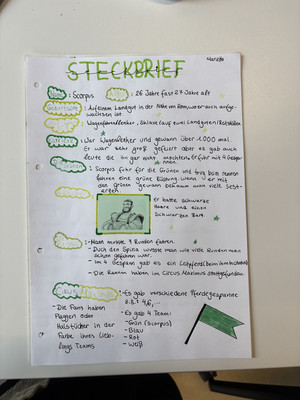 STECKBRIEF
: Scorpus
: 26 Jahre fast 27 Jahre alt
: Auf einem Landgut in der Nähe von Rom, wo er auch aufge-
wachsen ist.
: Wagenlenker, Sklave (auf zwei Landgütern)
: War Wagenlenker und gewann über 1.000 mal.
Er war sehr groß gefeiert aber es gab auch
Leute die ihn gar nicht mochten. Er fuhr mit 4
: Scorpus fuhr für die Grünen und trug beim rennen
fahren eine grüne Kleidung. Wenn er mit
den Grünen gewann bekam man viel Sest-
erzen.
er hatte schwarze
Haare und einen
Schwarzen Bart.
: - Man musste 7 Runden fahren.
- Durch den Spina wusste man wie viele Runden man
schon gefahren war.
- Im 4 Gespann gab es ein Leitpferd
- Die Rennen haben im Circus Maximus stattgefunden.
- Die Fans haben
Flaggen oder
Halstücher in der
Farbe ihres Lieb-
lings Teams
: - Es gab verschiedene Pferdegespanne
z.B. 2, 4, 6, ...
- Es gab 4 Team:
- Grün (Scorpus)
- Blau
- Rot
- Weiß